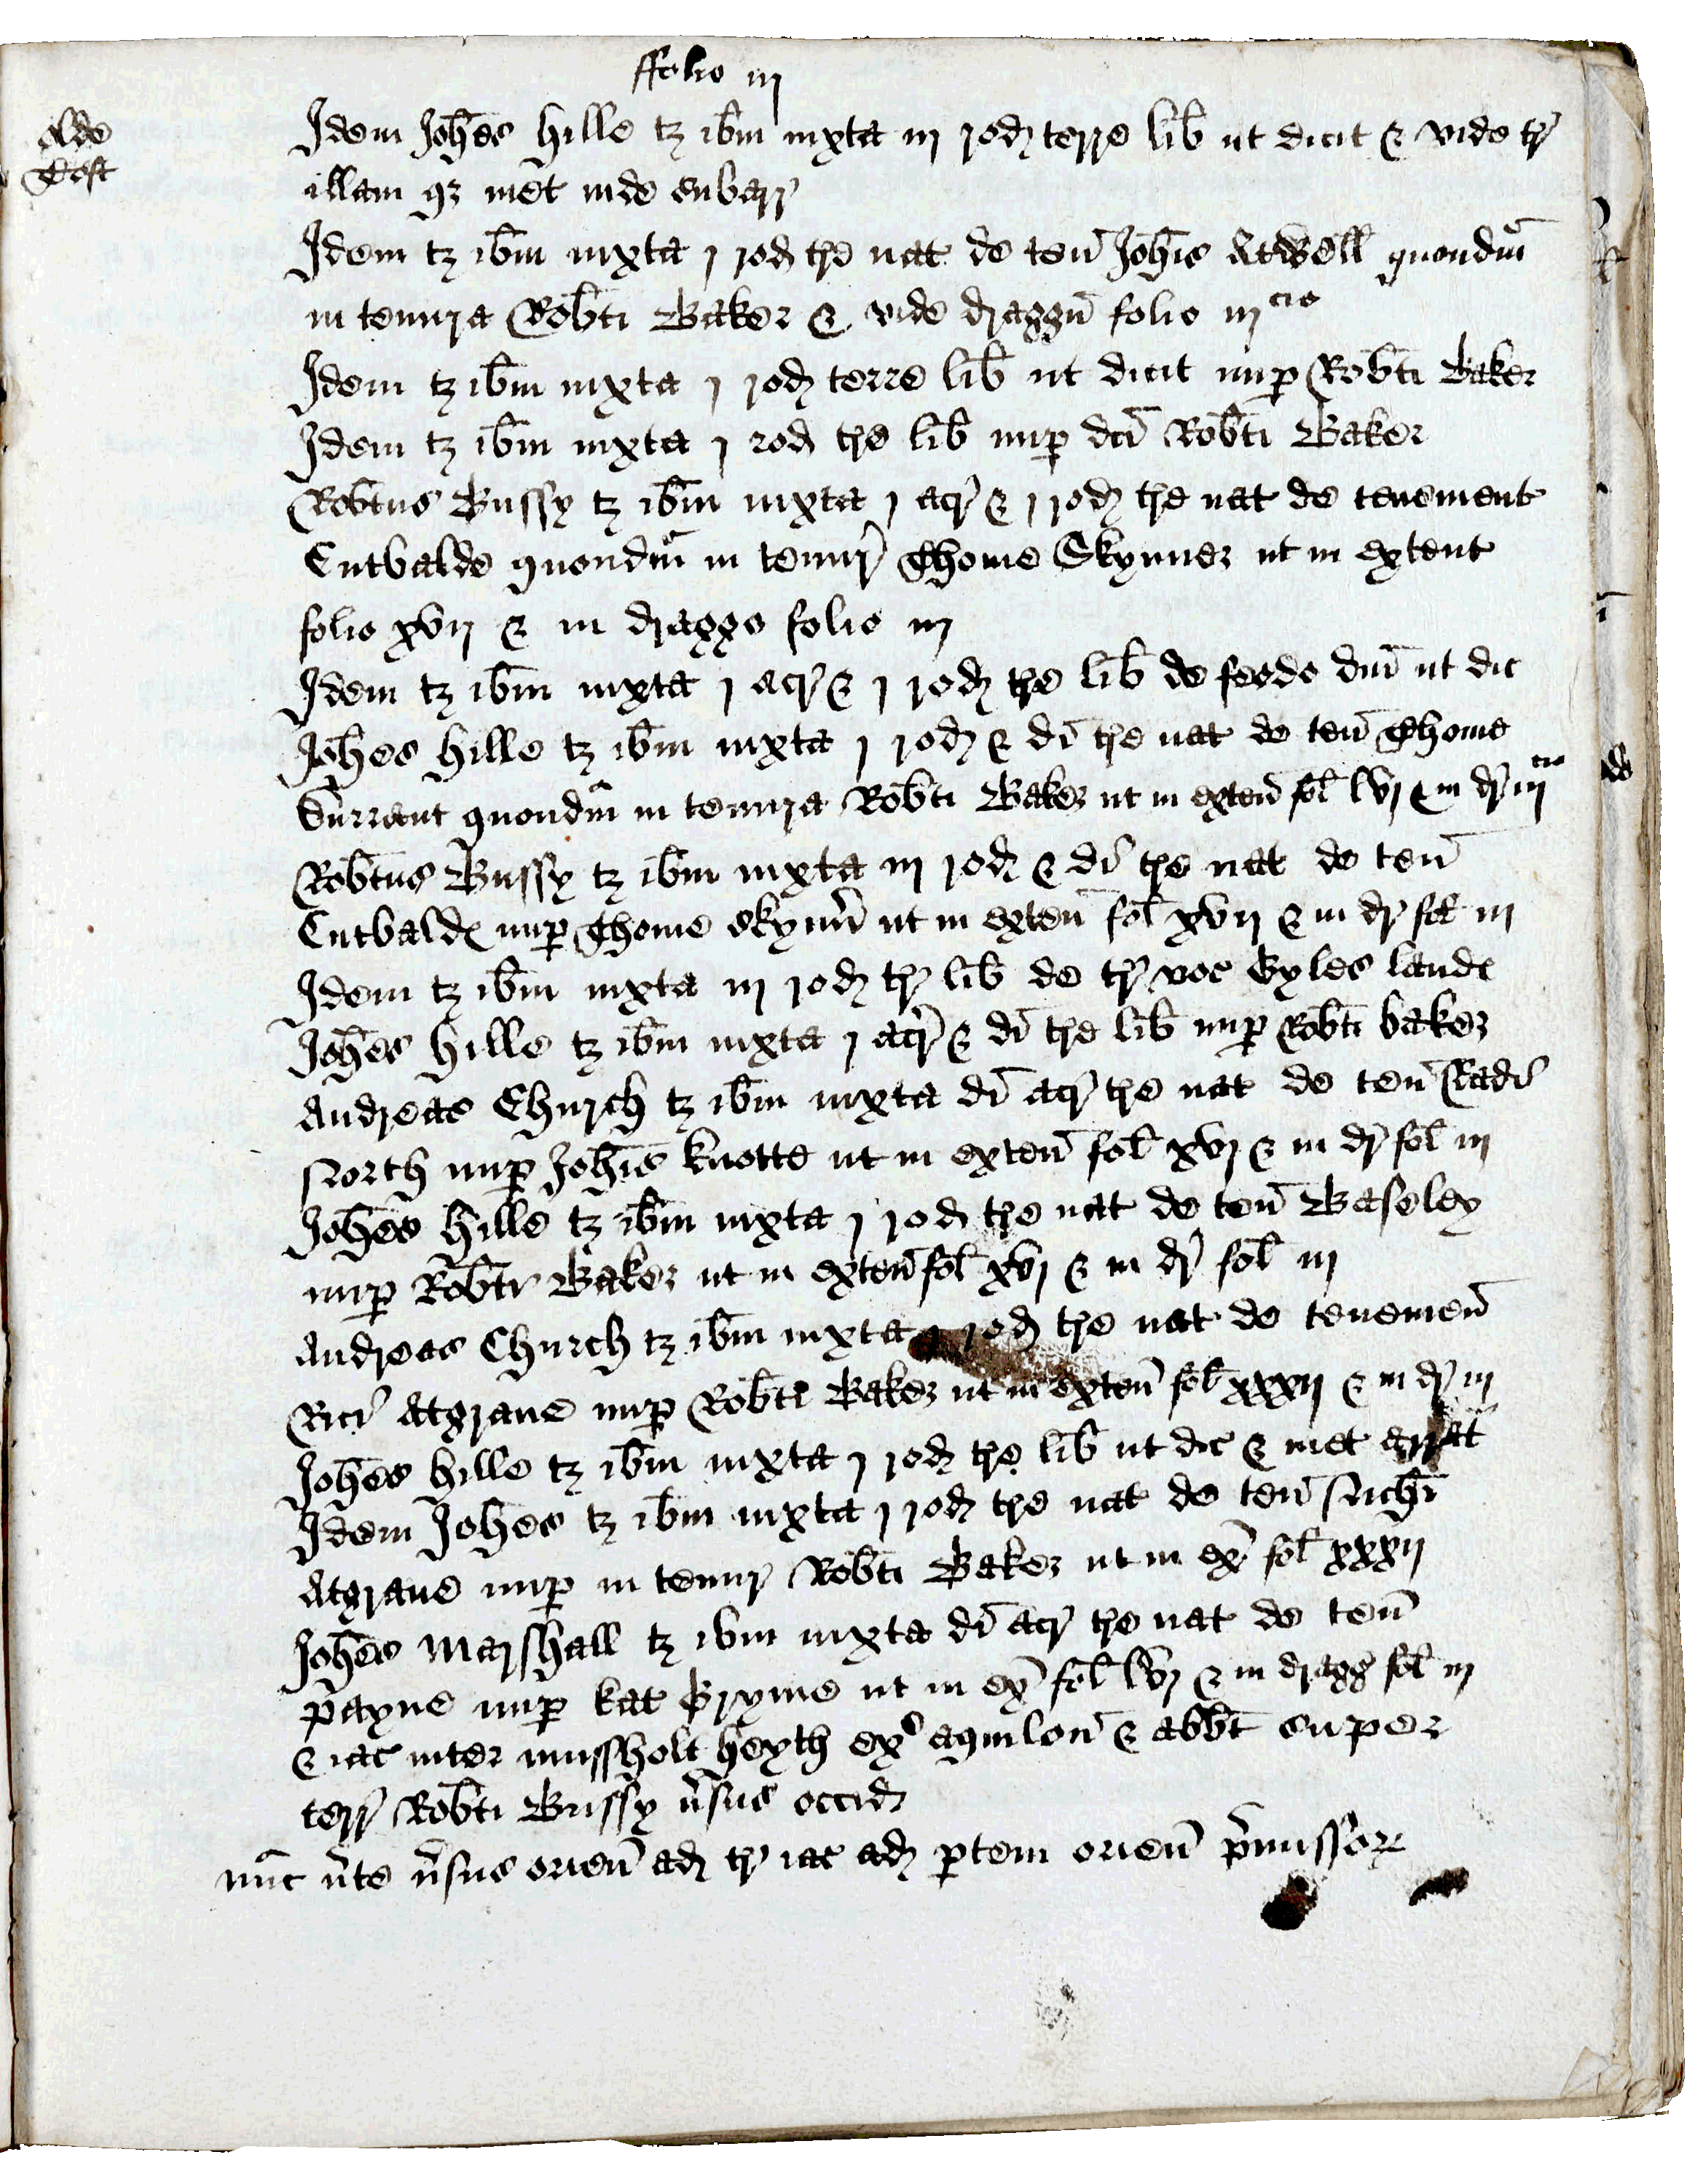 ffolio iij
olde
Toft
Idem Joh̄es hille tʒ ib̄m iuxta iij rod terre lib̄ ut dicit & vide tr̄
illam qʒ met inde subarr̄
Idem tʒ ib̄m iuxta j rod tr̄e nat de ten̄ Joh̄is Atwell quondm̄
in tenura Rob̄ti Baker & vide draggn̄ folio iij cio
Idem tʒ ib̄m iuxta j rod terre lib̄ ut dicit nup Rob̄ti Baker
Idem tʒ ib̄m iuxta j rod tr̄e lib̄ nup dc̄i Rob̄ti Baker
Rob̄tus Bussy tʒ ib̄m iuxta j acr̄ & j rod tr̄e nat de tenement
Cutbalde quondm̄ in tenur̄ Thome Skynner ut in extent
folio xvij & in dragge folio iij
Idem tʒ ib̄m iuxta j acr̄ & j rod tr̄e lib̄ de feodo dn̄i ut dic
Joh̄es hille tʒ ib̄m iuxta j rod & dī tr̄e nat de ten̄ Thome
Durrant quondm̄ in tenura Rob̄ti Baker ut in exten̄ fol̄ lvj & in dr̄ iij cio
Rob̄tus Bussy tʒ ib̄m iuxta iij rod & dī tr̄e nat de ten̄
Cutbalde nup Thome Skynn̄ ut in exten̄ fol̄ xvij & in dr̄ fol̄ iij
Idem tʒ ib̄m iuxta iij rod tr̄ lib̄ de tr̄ voc Gyles lande
Joh̄es hille tʒ ib̄m iuxta j acr̄ & dī tr̄e lib̄ nup Rob̄ti baker
Andreas Church tʒ ib̄m iuxta dī acr̄ tr̄e nat de ten̄ Radī
North nup Joh̄is knotte ut in exten̄ fol̄ xvj & in dr̄ fol̄ iij
Joh̄es hille tʒ ib̄m iuxta j rod tr̄e nat de ten̄ Baseley
nup Rob̄ti Baker ut in exten̄ fol̄ xvj & in dr̄ fol̄ iij
Andreas Church tʒ ib̄m iuxta j rod tr̄e nat de tenemen̄
Ric̄i Atgraue nup Rob̄ti Baker ut in exten̄ fol̄ xxxij & in dr̄ iij
Joh̄es hille tʒ ib̄m iuxta j rod tr̄e lib̄ ut dic & met
Idem Joh̄es tʒ ib̄m iuxta j rod tr̄e nat de ten̄ Nich̄i
Atgraue nup in tenur̄ Rob̄ti Baker ut in ex̄ fol̄ xxxij
Joh̄es Marshall tʒ ib̄m iuxta dī acr̄ tr̄e nat de ten̄
payne nup kat Pryme ut in ex̄ fol̄ lvj & in dragg fol̄ iij
& iac inter mussholt heyth ex aquilon̄ & abb̄t super
terr̄ Rob̄ti Bussy v̄sus occid
nūc v̄te v̄sus orien̄ ad tr̄ iac ad ptem orien̄ p̄missor